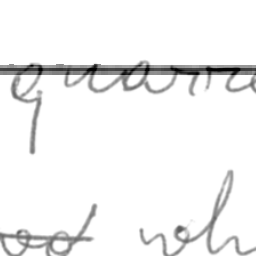 quarre
od wh